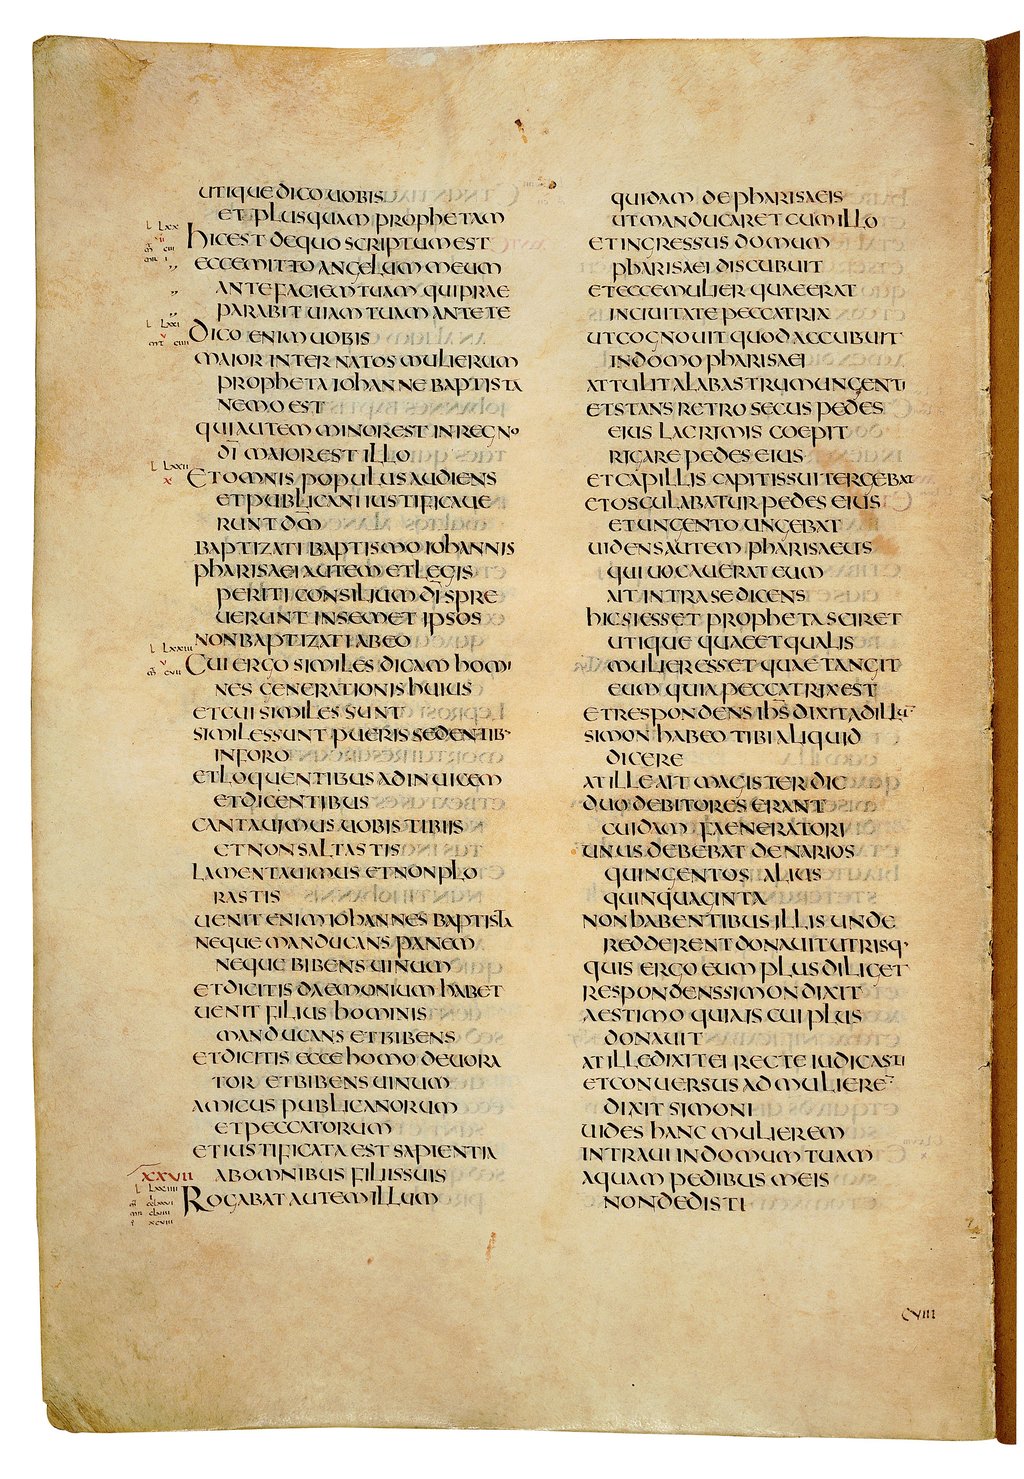 utique dico uobis
et plus quam prophetam
hic est de quo scriptum est
ecce mitto angelum meum
ante faciem tuam qui prae
parabit uiam tuam ante te
Dico enim uobis
maior inter natos mulierum
propheta iohanne baptista
nemo est
qui autem minor est in regno
dī maior est illo
Et omnis populus audiens
et publicani iustificaue
runt dm̄
baptizati baptismo iohannis
pharisaei autem et legis
periti consilium dī spre
uerunt in semet ipsos
non baptizati ab eo
Cui ergo similes dicam homi
nes generationis huius
et cui similes sunt
similes sunt pueris sedentib·
in foro
et loquentibus ad inuicem
et dicentibus
cantauimus uobis tibiis
et non saltastis
lamentauimus et non plo
rastis
uenit enim iohannes baptista
neque manducans panem
neque bibens uinum
et dicitis daemonium habet
uenit filius hominis
manducans et bibens
et dicitis ecce homo deuora
tor et bibens uinum
amicus publicanorum
et peccatorum
et iustificata est sapientia
ab omnibus filiis suis
Rogabat autem illum
quidam de pharisaeis
ut manducaret cum illo
et ingressus domum
pharisaei discubuit
et ecce mulier quae erat
in ciuitate peccatrix
ut cognouit quod accubuit
in domo pharisaei
attulit alabastrum ungenti
et stans retro secus pedes
eius lacrimis coepit
rigare pedes eius
et capillis capitis sui tergebat
et osculabatur pedes eius
et ungento ungebat
uidens autem pharisaeus
qui uocauerat eum
ait intra se dicens
hic si esset propheta sciret
utique quae et qualis
mulier esset quae tangit
eum quia peccatrix est
et respondens ihs̄ dixit ad illū
simon habeo tibi aliquid
dicere
at ille ait magister dic
duo debitores erant
cuidam faeneratori
unus debebat denarios
quingentos alius
quinquaginta
non habentibus illis unde
redderent donauit utrisq·
quis ergo eum plus diliget
respondens simon dixit
aestimo quia is cui plus
donauit
at ille dixit ei recte iudicasti
et conuersus ad mulierē
dixit simoni
uides hanc mulierem
intraui in domum tuam
aquam pedibus meis
non dedisti
l lxx
l lxxi
l lxxii
x
l lxxiii
xxvii
l lxxiiii
cviii